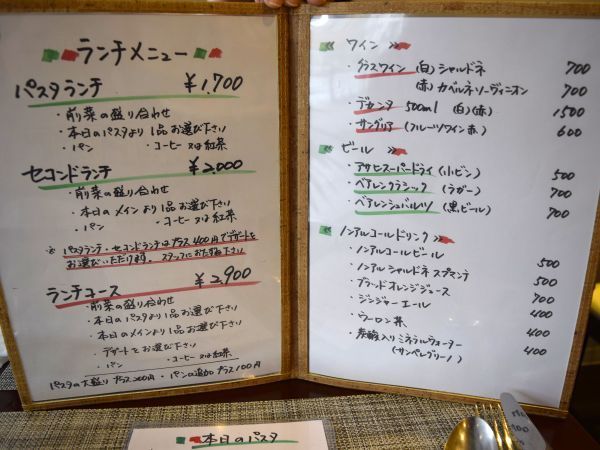 ランチメニュー
パスタランチ ¥1,700
・前菜の盛り合わせ
・本日のパスタより1品お選び下さい
・パン ・コーヒー又は紅茶
セコンドランチ ¥2,000
・前菜の盛り合わせ
・本日のメインより1品お選び下さい
・パン ・コーヒー又は紅茶
※パスタランチ・セコンドランチはプラス400円でデザートを
お選びいただけます。スタッフにおたずね下さい
ランチコース ¥2,900
・前菜の盛り合わせ
・本日のパスタより1品お選び下さい
・本日のメインより1品お選び下さい
・デザートをお選び下さい
・パン ・コーヒー又は紅茶
パスタの大盛りプラス200円・パンの追加プラス100円
ワイン
・グラスワイン (白)シャルドネ 700
(赤)カベルネソーヴィニオン 700
・デカンタ 500ml (白)(赤) 1500
・サングリア (フルーツワイン赤) 600
ビール
・アサヒスーパードライ(小ビン) 500
・ベアレンクラシック (ラガー) 700
・ベアレンシュバルツ (黒ビール) 700
ノンアルコールドリンク
・ノンアルコールビール 500
・ノンアルシャルドネスプマンテ 500
・ブラッドオレンジジュース 700
・ジンジャーエール 400
・ウーロン茶 400
・炭酸入りミネラルウォーター 400
(サンペレグリーノ)
本日のパスタ